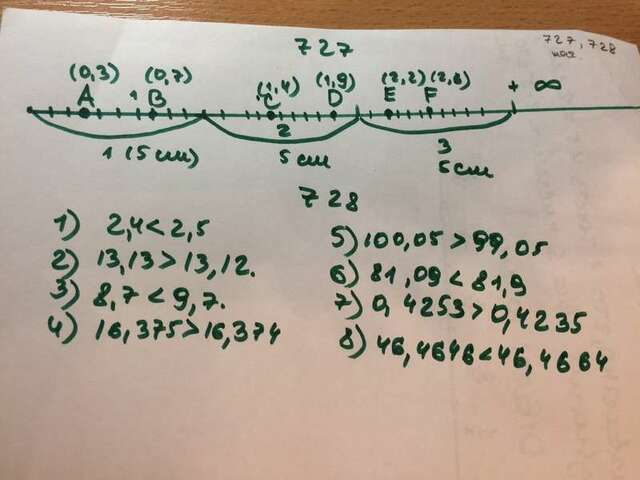 727, 728
727
(0,3) (0,7) (1,4) (1,9) (2,2) (2,8) + ∞
A B C D E F
1 (5 см) 2 5 см 3 5 см
728
1) 2,4 < 2,5
2) 13,13 > 13,12.
3) 8,7 < 9,7.
4) 16,375 > 16,374
5) 100,05 > 99,05
6) 81,09 < 81,9
7) 0,4253 > 0,4235
8) 46,4648 < 46,4684